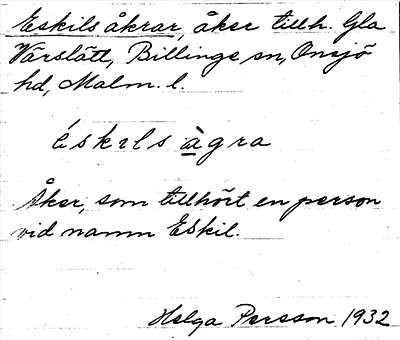 Eskils åkrar, åker tillh. Gla
Vårslätt, Billinge sn, Onsjö
hd, Malm. l.
éskils àgra
Åker, som tillhört en person
vid namn Eskil.
Helga Persson 1932